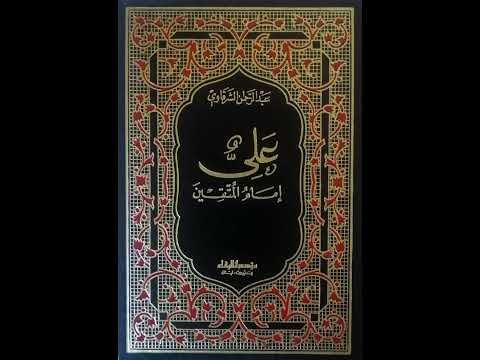 عبد الرحمن الشرقاوي
عَلِيٌّ
إمَامُ المُتَّقِينَ